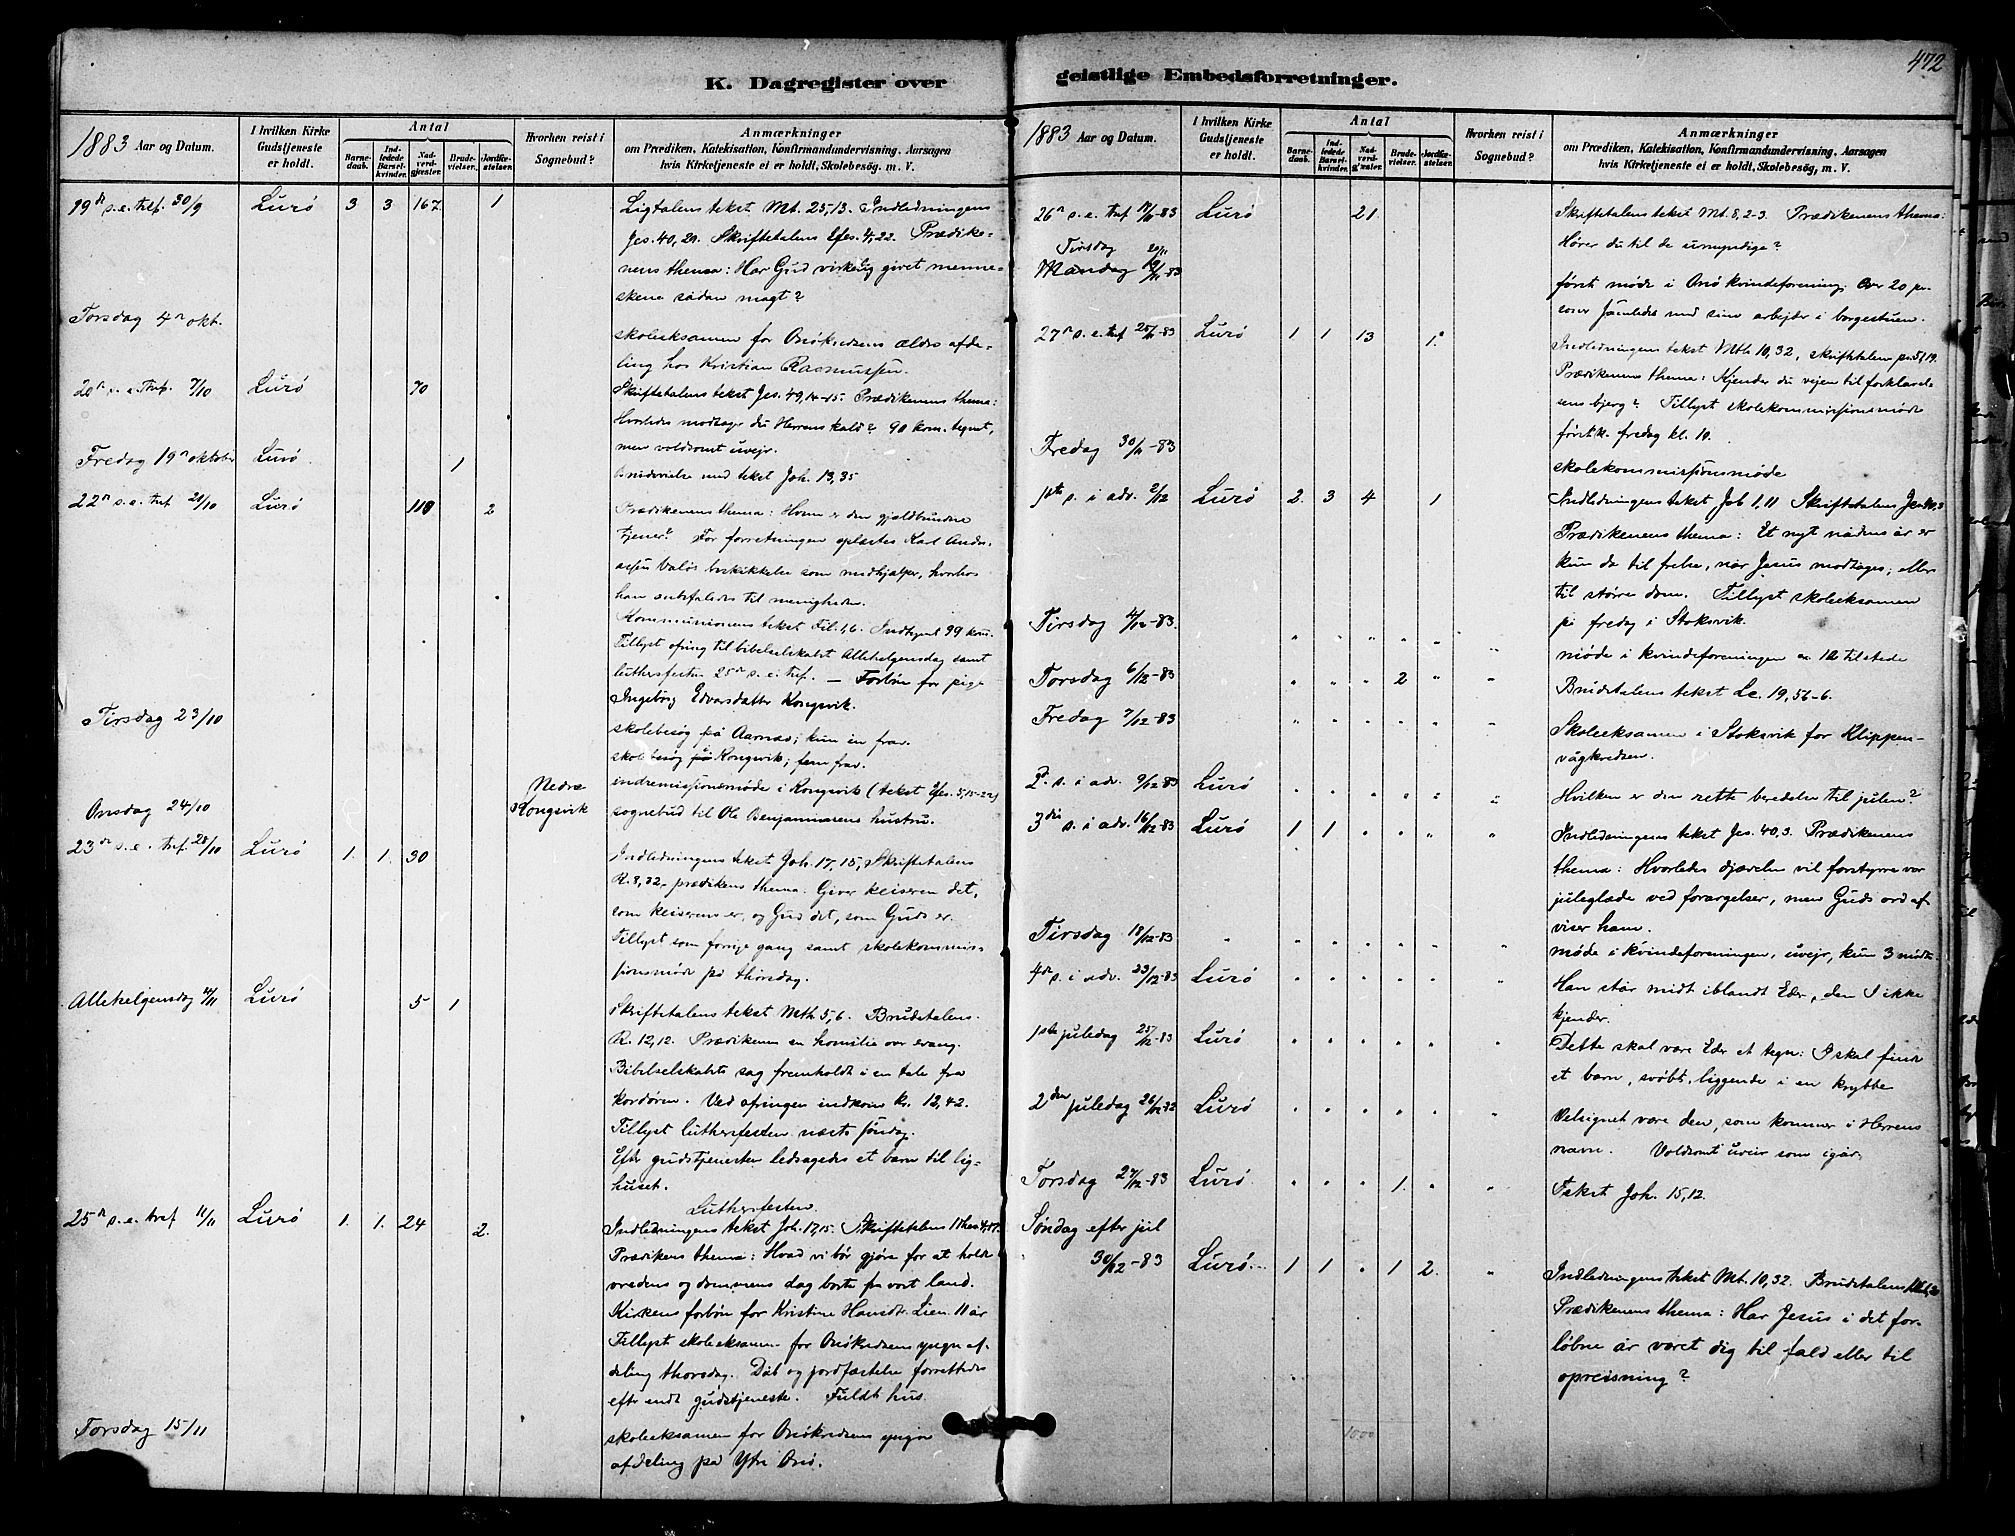 472
K. Dagregister over
geistlige Embedsforretninger.
1883 Aar og Datum.
I hvilken Kirke Gudstjeneste er holdt.
Antal
Barne-daab.
Ind-ledede Barsel-kvinder.
Nad-verd-gjæster.
Brude-vielser.
Jordfæ-stelser.
Hvorhen reist i Sognebud?
Anmærkninger
om Prædiken, Katekisation, Konfirmandundervisning, Aarsagen
hvis Kirketjeneste ei er holdt, Skolebesøg, m. V.
19de s. e. tref. 30/9 Lurö 3 3 167. 1
Ligtalens tekst Mt. 25,13. Indledningens
Jes. 40, 29. Skriftetalens Efes. 4, 22. Prædike-
nens thema: Har Gud virkelig givet menne-
skene sådan magt?
Torsdag 4de okt.
skoleeksamen for Onökredsens ældre afde-
ling hos Kristian Rasmussen.
20de s. e. Tref. 7/10 Lurö 70
Skriftetalens tekst Jes. 49,14-15. Prædikenens thema:
Hvorledes modtager du Herrens kald? 90 kom. tegnet,
men voldsomt uveir.
Fredag 19de oktober Lurö 1
Brudevielse med tekst Joh. 13,35
22de s. e. tref 21/10 Lurö 110 2
Prædikenens thema: Hvem er den gjældbundne
tjener? Før forretningen oplæstes Karl Andr-
Valös beskikkelse som medhjælper, hvorhos
han anbefaledes til menigheden.
Kommunionens tekst Fil. 1,6. Indtegnet 99 kom.
Tillyst ofring til bibelselskabet Allehelgensdag samt
luthersfesten 25de s. e. tref. — Forbön for pige
Ingeborg Edvarsdatter Kongsvik.
Tirsdag 23/10
skolebesøg på Aarnes; kun en frav.
skolebesøg på Kongsvik; fem frav.
indremissionsmøde i Kongsvik (tekst Efes. 5,15-22)
Onsdag 24/10 Nedre Kongsvik
sognebud til Ole Benjaminsens hustru.
23de s. e. tref. 28/10 Lurö 1. 1. 30
Indledningens tekst Joh. 17,15, Skriftetalens
R. 8,32, prædikens thema: Giver keiseren det,
som keiserens er, og Gud det, som Guds er.
Tillyst som forrige gang samt skolekommis-
sionsmøde på thorsdag.
Allehelgensdag 4/11 Lurö 5 1
Skriftetalens tekst Mth. 5,6. Brudetalens
R. 12,12. Prædikenen en homilie over evang.
Bibelselskabets sag fremholdt i en tale fra
kordøren. Ved ofringen indkom kr. 12,42.
Tillyst luthersfesten næste søndag.
Efter gudstjenesten ledsagedes et barn til lig-
huset.
Luthersfesten.
25de s. e. tref 11/11 Lurö 1. 1. 24 2.
Indledningens tekst Joh. 17,15. Skriftetalens 1 Thes. 4,17.
Prædikens thema: Hvad vi bør gjøre for at holde
vredens og dommens dag borte fra vort land.
Kirkens forbön for Kristine Hansdt. Lien 11 år
Tillyst skoleeksamen for Onökredsens yngre af-
deling thorsdag. Dåb og jordfæstelse forrettedes
efter endt gudstjeneste. Fuldt hus.
Torsdag 15/11
skoleeksamen for Onökredsens yngre
afdeling på Ytre Onö.
1883 Aar og Datum.
I hvilken Kirke Gudstjeneste er holdt.
Antal
Barne-daab.
Ind-ledede Barsel-kvinder.
Nad-verd-gjæster.
Brude-vielser.
Jordfæ-stelser.
Hvorhen reist i Sognebud?
Anmærkninger
om Prædiken, Katekisation, Konfirmandundervisning, Aarsagen
hvis Kirketjeneste ei er holdt, Skolebesøg, m. V.
26de s. e. tref 18/11-83 Lurö 21
Skriftetalens tekst Mt. 8, 2-3. Prædikenens thema:
Hører du til de umyndige?
Tirsdag 20/11
Mandag 19/11-83
først møde i Onö kvindeforening. Over 20 per-
soner samledes med sine arbejder i borgestuen.
27de s. e. tref 25/11-83 Lurö 1 1 13 1.
Indledningens tekst Mth. 10, 32, skriftetalen ps. 51,19.
Prædikenens thema: Kjender du vejen til forklarel-
sens bjerg? Tillyst skolekommissionsmøde
førstk. fredag kl. 10.
Fredag 30/11-83
skolekommissionsmøde
1ste s. i adv. 2/12 Lurö 2. 3 4 1
Indledningens tekst Joh 1,11 Skriftetalens Jes.
Prædikenens thema: Et nyt nådens år er
kun da til frelse, når Jesus modtages; ellers
til større dom. Tillyst skoleeksamen
på fredag i Stoksvik.
Tirsdag 4/12-83.
møde i kvindeforeningen ca. 12 tilstede
Torsdag 6/12-83 2
Brudetalens tekst Lc. 19,5b-6.
Fredag 7/12-83
Skoleeksamen i Stoksvik for Klippen-
vågkredsen.
2. s. i adv. 9/12-83 Lurö
Hvilken er den rette beredelse til julen?
3die s. i adv. 16/12-83 Lurö 1 1
Indledningens tekst Jes. 40,3. Prædikenens
thema: Hvorledes djævelen vil forstyrre vor
juleglæde ved forargelser, men Guds ord af-
viser ham.
Tirsdag 18/12-83
møde i kvindeforeningen, uvejr, kun 3 mødte
4de s. i adv. 23/12-83 Lurö
Han står midt iblandt Eder, den I ikke
kjender.
1ste juledag 25/12-83 Lurö
Dette skal være Eder et tegn: I skal finde
et barn, svøbt, liggende i en krybbe
2den juledag 26/12-83 Lurö
Velsignet være den, som kommer i Herrens
navn. Voldsomt uveir som igår.
Torsdag 27/12-83 Lurö. 1.
Tekst Joh. 15,12.
Søndag efter jul
30/12-83 Lurö. 1 1 1 2.
Indledningens tekst Mt. 10,32. Brudetalens
Prædikenens thema: Har Jesus i det for-
løbne år været dig til fald eller til
opreisning?
1000